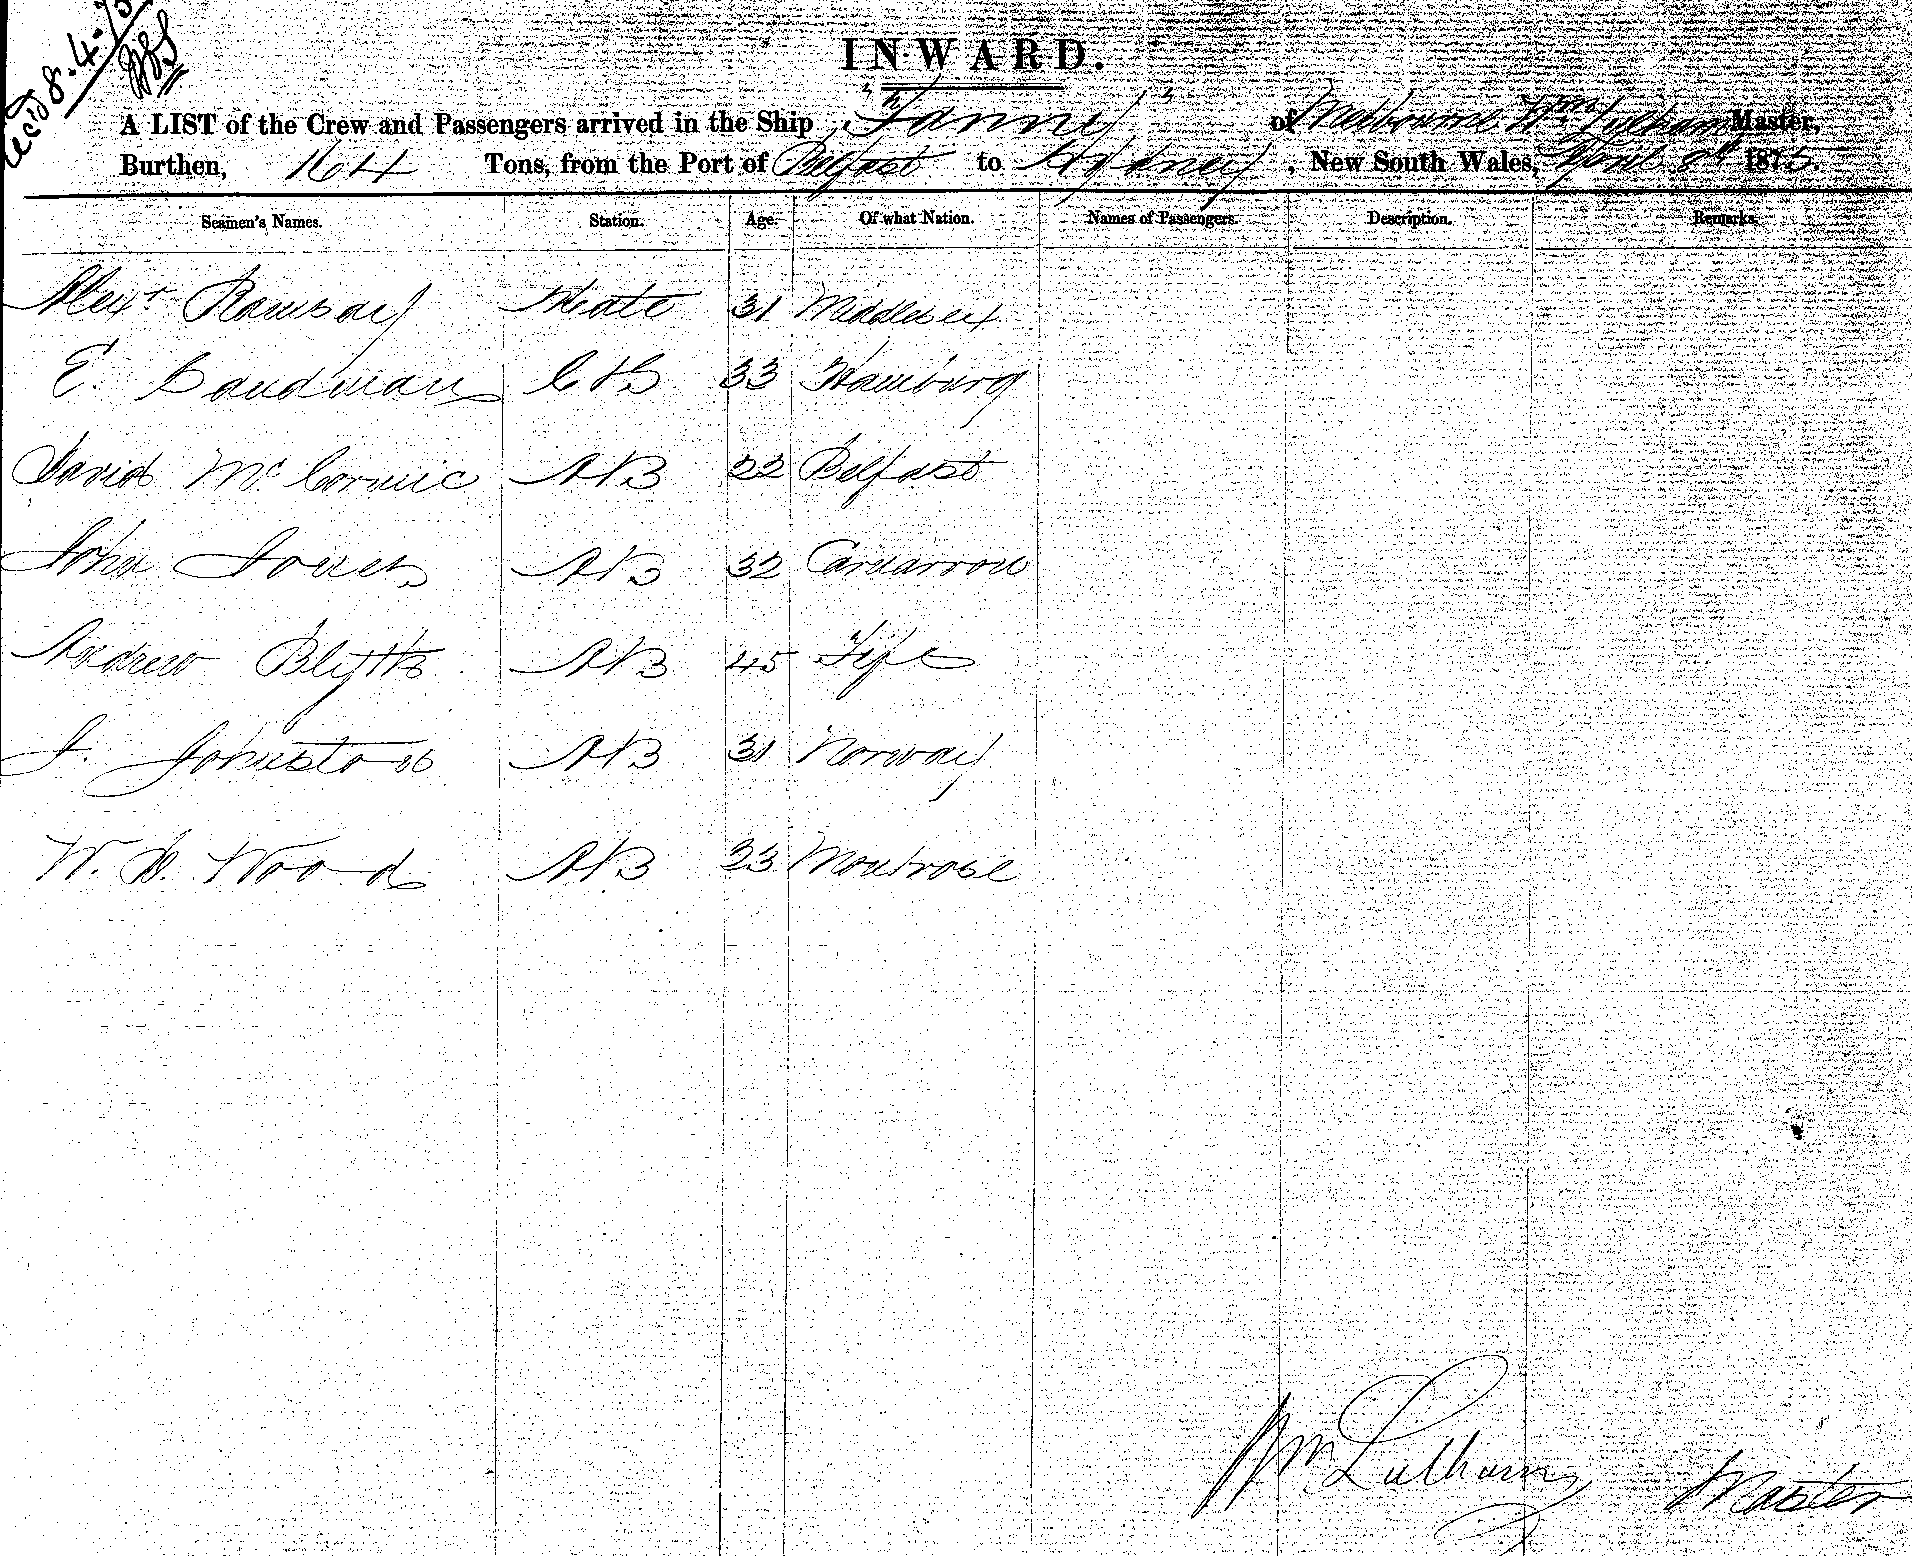 Rec'd 8.4.75
INWARD.
A LIST of the Crew and Passengers arrived in the Ship "Fanny" of Melbourne Wm Lulham Master,
Burthen, 164 Tons, from the Port of Belfast to Sydney, New South Wales, April 8th 1875.
Seamen's Names. Station. Age. Of what Nation. Names of Passengers. Description. Remarks.
Alexr Ramsay Mate 31 Middlesex
E. Landman C&S 33 Hamburg
David Mc Cormic AB 22 Belfast
John Jones AB 32 Carnarvon
Andrew Blyth AB 45 Fife
J. Johnston AB 31 Norway
W. D. Wood AB 23 Montrose
Wm Lulham Master